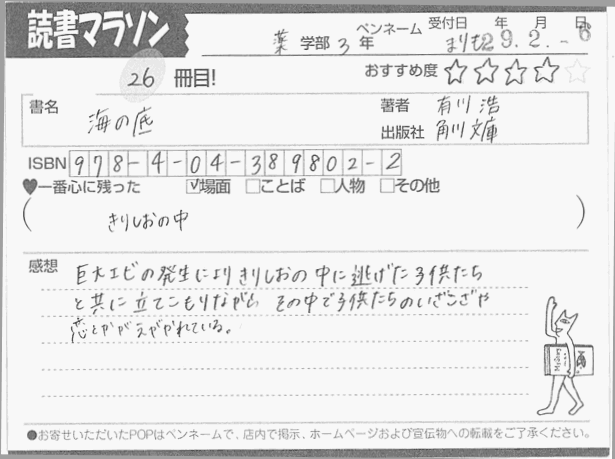 読書マラソン
薬 学部 3 年 ペンネーム まりも 受付日 29年 2.月 -6日
26 冊目!
おすすめ度 ☆☆☆☆☆
書名 海の底
著者 有川 浩
出版社 角川文庫
ISBN 978-4-04-389802-2
♥一番心に残った ☑場面 □ことば □人物 □その他
( きりしおの中 )
感想 巨大エビの発生によりきりしおの中に逃げた子供たち
と共に立てこもりながら その中で子供たちのいざこざや
恋とかがえがかれている。
●お寄せいただいたPOPはペンネームで、店内で掲示、ホームページおよび宣伝物への転載をご了承ください。